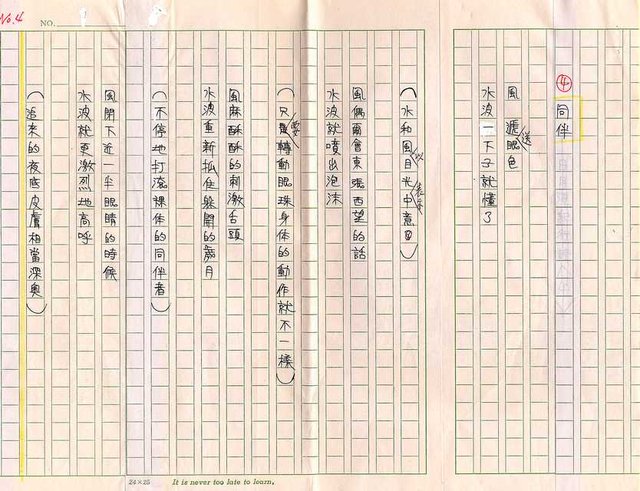 No.4
NO. 1
④
同伴
風遞送眼色
水波一下子就懂了
（水和風以目光中表示意思）
風偶爾會東張西望的話
水波就噴出泡沫
（只要轉動眼珠身体的動作就不一樣）
風麻酥酥的刺激舌頭
水波重新抓住躲開的歲月
（不停地打滾裸体的同伴者）
風閉下近一半眼睛的時候
水波就更激烈地高呼
（近來的夜底皮膚相當深奧）
24×25
It is never too late to learn.